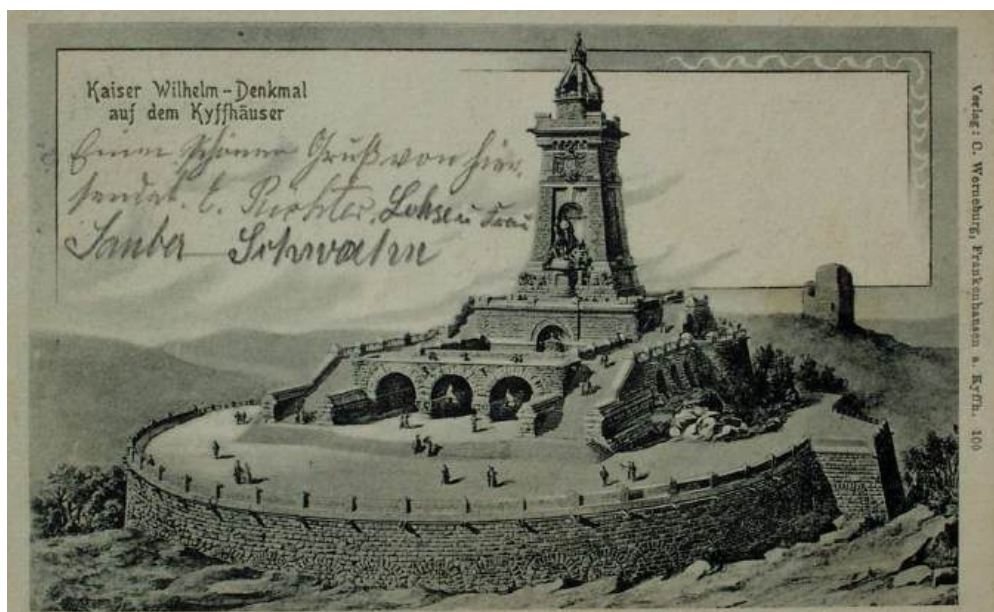 Kaiser Wilhelm-Denkmal
auf dem Kyffhäuser
Einen schönen Gruß von hier
sendet. E. Richter, Lohse u Frau
Sauber Schwahn
Verlag: C. Werneburg, Frankenhausen a. Kyffh. 100